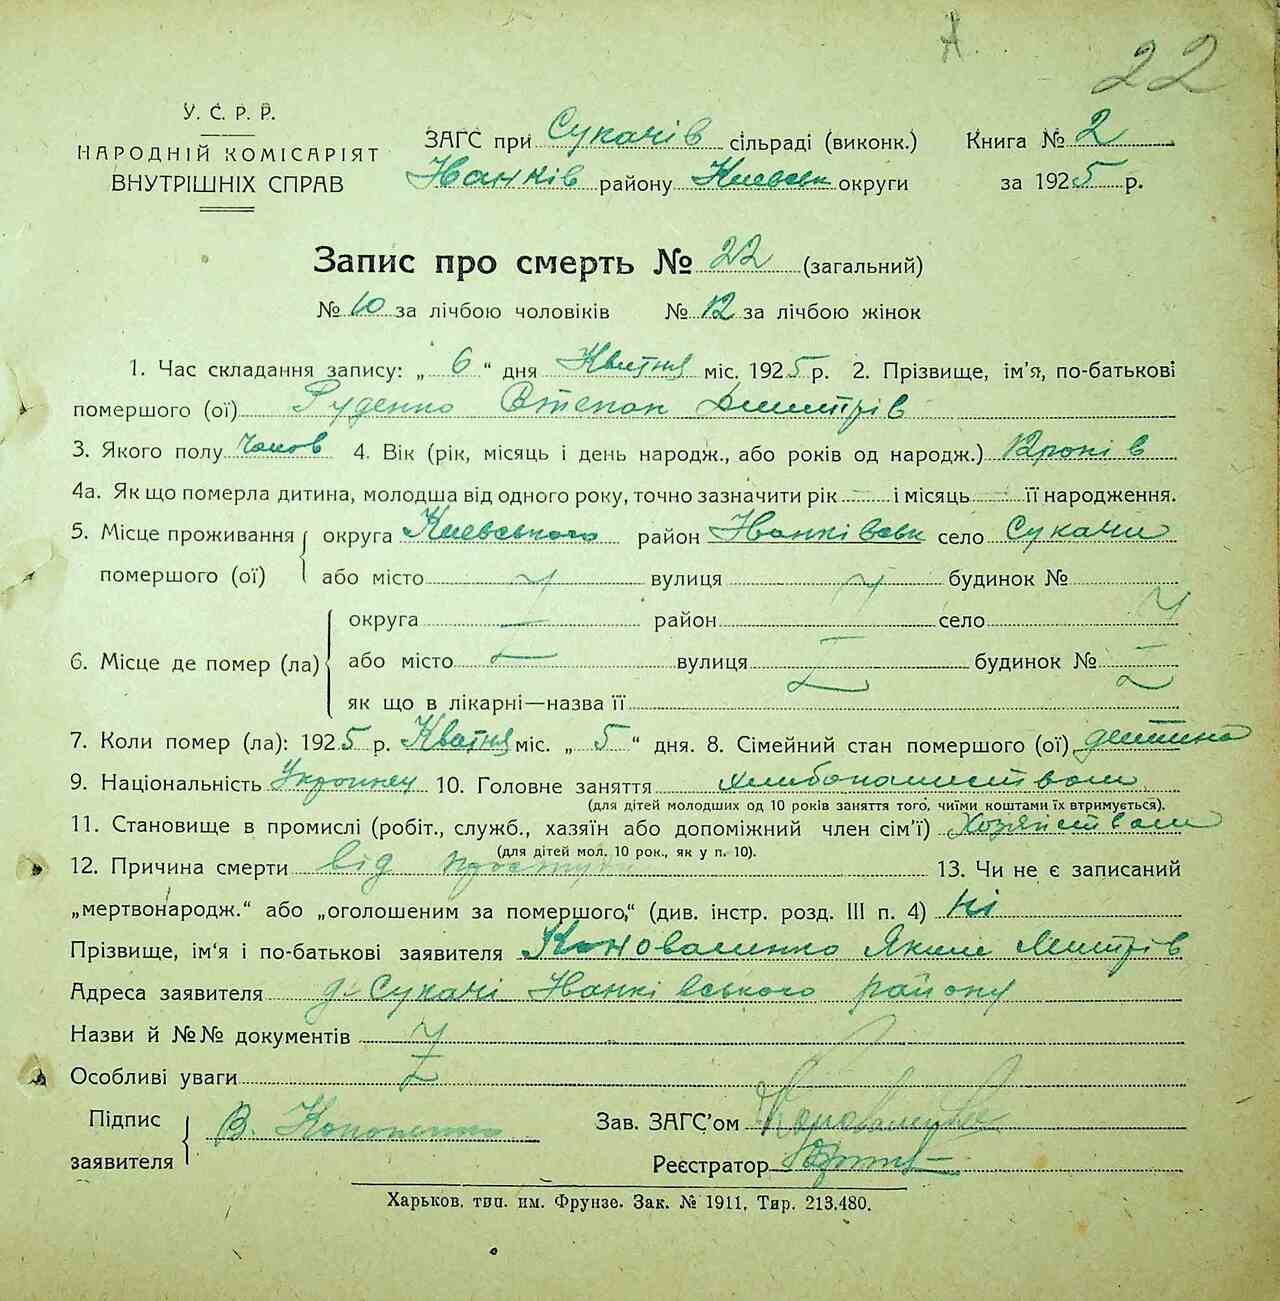 А.
22
У. С. Р. Р.
НАРОДНІЙ КОМІСАРІЯТ
ВНУТРІШНІХ СПРАВ
ЗАГС при Сукачів сільраді (виконк.)
Іванків району Киевськ округи
Книга № 2
за 1925 р.
Запис про смерть № 22 (загальний)
№ 10 за лічбою чоловіків № 12 за лічбою жінок
1. Час складання запису: „ 6 “ дня Квітня міс. 1925 р. 2. Прізвище, ім’я, по-батькові
помершого (ої) Руденко Степан Дмитрів
3. Якого полу чолов 4. Вік (рік, місяць і день народж., або років од народж.) 12 років
4а. Як що померла дитина, молодша від одного року, точно зазначити рік і місяць її народження.
5. Місце проживання помершого (ої) округа Киевського район Іванківськ село Сукачи
або місто вулиця будинок №
6. Місце де помер (ла) округа район село
або місто вулиця будинок №
як що в лікарні—назва її
7. Коли помер (ла): 1925 р. Квітня міс. „ 5 “ дня. 8. Сімейний стан помершого (ої) дитина
9. Національність 10. Головне заняття
(для дітей молодших од 10 років заняття того, чиїми коштами їх втримується).
11. Становище в промислі (робіт., служб., хазяїн або допоміжний член сім’ї) Хозяйством
(для дітей мол. 10 рок., як у п. 10).
12. Причина смерти від 13. Чи не є записаний
„мертвонародж.“ або „оголошеним за помершого,“ (див. інстр. розд. III п. 4) Ні
Прізвище, ім‘я і по-батькові заявителя Коноваленко Яким Дмитрів
Адреса заявителя д. Сукачі Іванківського району
Назви й №№ документів
Особливі уваги
Підпис заявителя В. Кононенко
Зав. ЗАГС’ом
Реєстратор
Харьков, тип. им. Фрунзе. Зак. № 1911, Тир. 213.480.